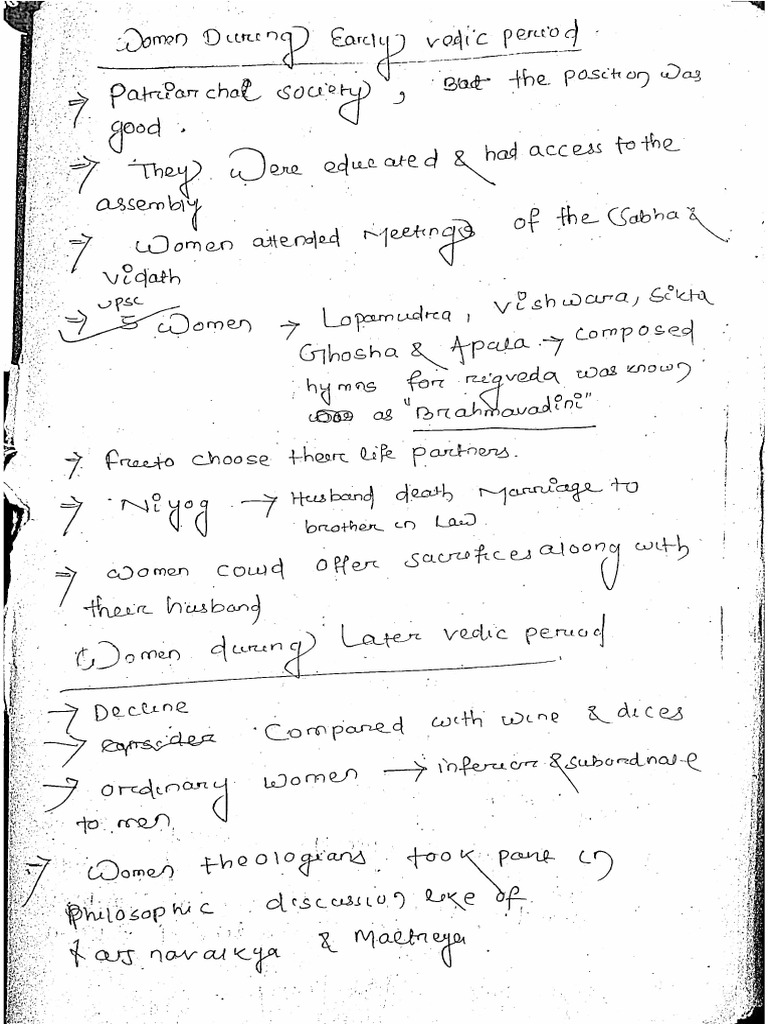 Women During Early vedic period
⇒ Patriarchal society, But the position was
good.
⇒ They Were educated & had access to the
assembly
⇒ Women attended Meetings of the Sabha &
vidath
upsc
⇒ 5 Women → Lopamudra, Vishwara, Sikta
Ghosha & Apala → composed
hymns for rigveda was known
as "Brahmavadini"
⇒ free to choose their life partners.
⇒ Niyog → Husband death Marriage to
brother in Law
⇒ Women could offer sacrifices aloong with
their husband
Women during Later vedic period
→ Decline
→ consider Compared with wine & dices
→ ordinary women → inferior & subordnate
to men
⇒ Women theologians took part in
philosophic discussion like of
& Maitreya